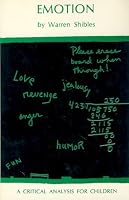 EMOTION
by Warren Shibles
Please erase
board when
through!
Love
jealousy
revenge
anger
250
423)105750
846
2115
2115
humor
FUN
A CRITICAL ANALYSIS FOR CHILDREN